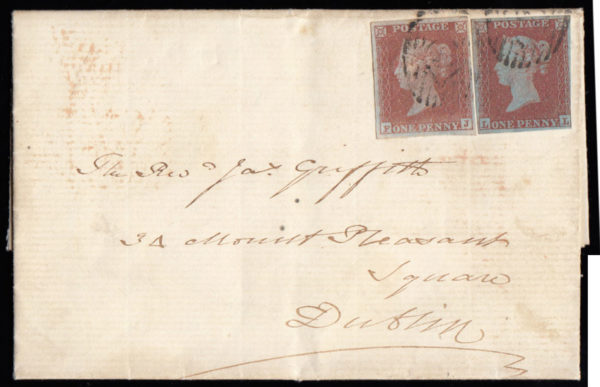 POSTAGE POSTAGE
F J ONE PENNY L L ONE PENNY
The Revd Jas Griffith
34 Mount Pleasant
Square
Dublin